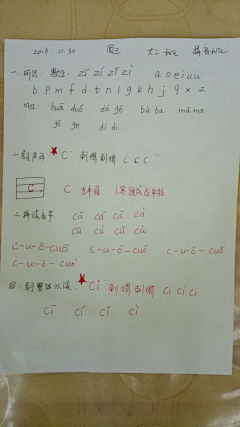 2016.11.30 周三 大二
一. 听写: 整体: zī zí zǐ zì a o e i u ü
b p m f d t n l g k h j q x z
词: huā duǒ dà gē bà ba mā ma
gē ge dì di
二. 教声母 ★ C 刺猬刺猬 c c c
C C
三. 拼读音节 cā cá cǎ cà
cū cú cǔ cù
c-u-ō-cuō c-u-ó-cuó c-u-ǒ-cuǒ
c-u-ò-cuò
四. 整体认读 ★ Ci 刺猬刺猬 ci ci ci
cī cí cǐ cì